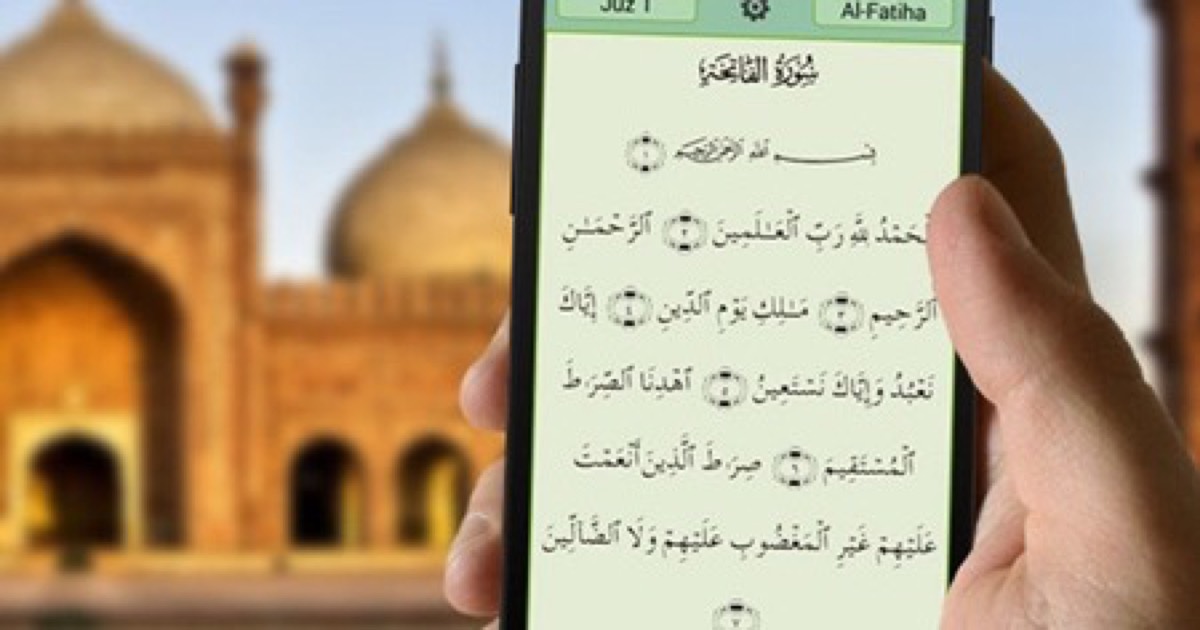 Juz 1 Al-Fatiha
سُورَةُ الفَاتِحَةِ
بِسْمِ ٱللَّهِ ٱلرَّحْمَـٰنِ ٱلرَّحِيمِ ١
ٱلْحَمْدُ لِلَّهِ رَبِّ ٱلْعَـٰلَمِينَ ٢ ٱلرَّحْمَـٰنِ
ٱلرَّحِيمِ ٣ مَـٰلِكِ يَوْمِ ٱلدِّينِ ٤ إِيَّاكَ
نَعْبُدُ وَإِيَّاكَ نَسْتَعِينُ ٥ ٱهْدِنَا ٱلصِّرَٰطَ
ٱلْمُسْتَقِيمَ ٦ صِرَٰطَ ٱلَّذِينَ أَنْعَمْتَ
عَلَيْهِمْ غَيْرِ ٱلْمَغْضُوبِ عَلَيْهِمْ وَلَا ٱلضَّآلِّينَ
٧